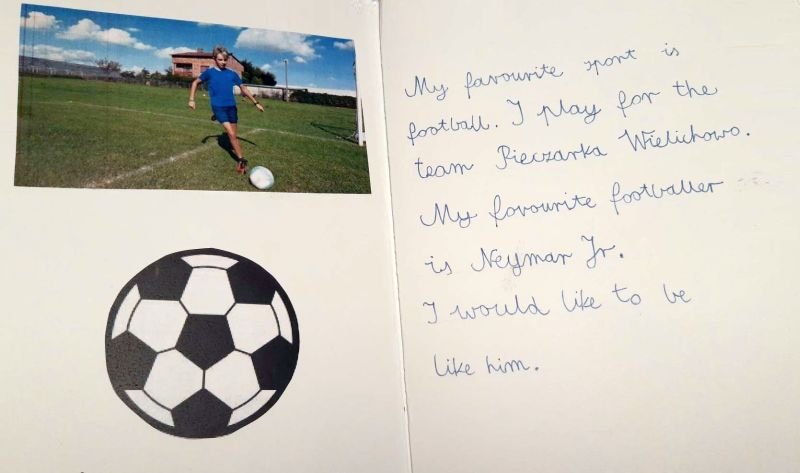 My favourite sport is
football. I play for the
team Pieczarka Wielichowo.
My favourite footballer
is Neymar Jr.
I would like to be
like him.